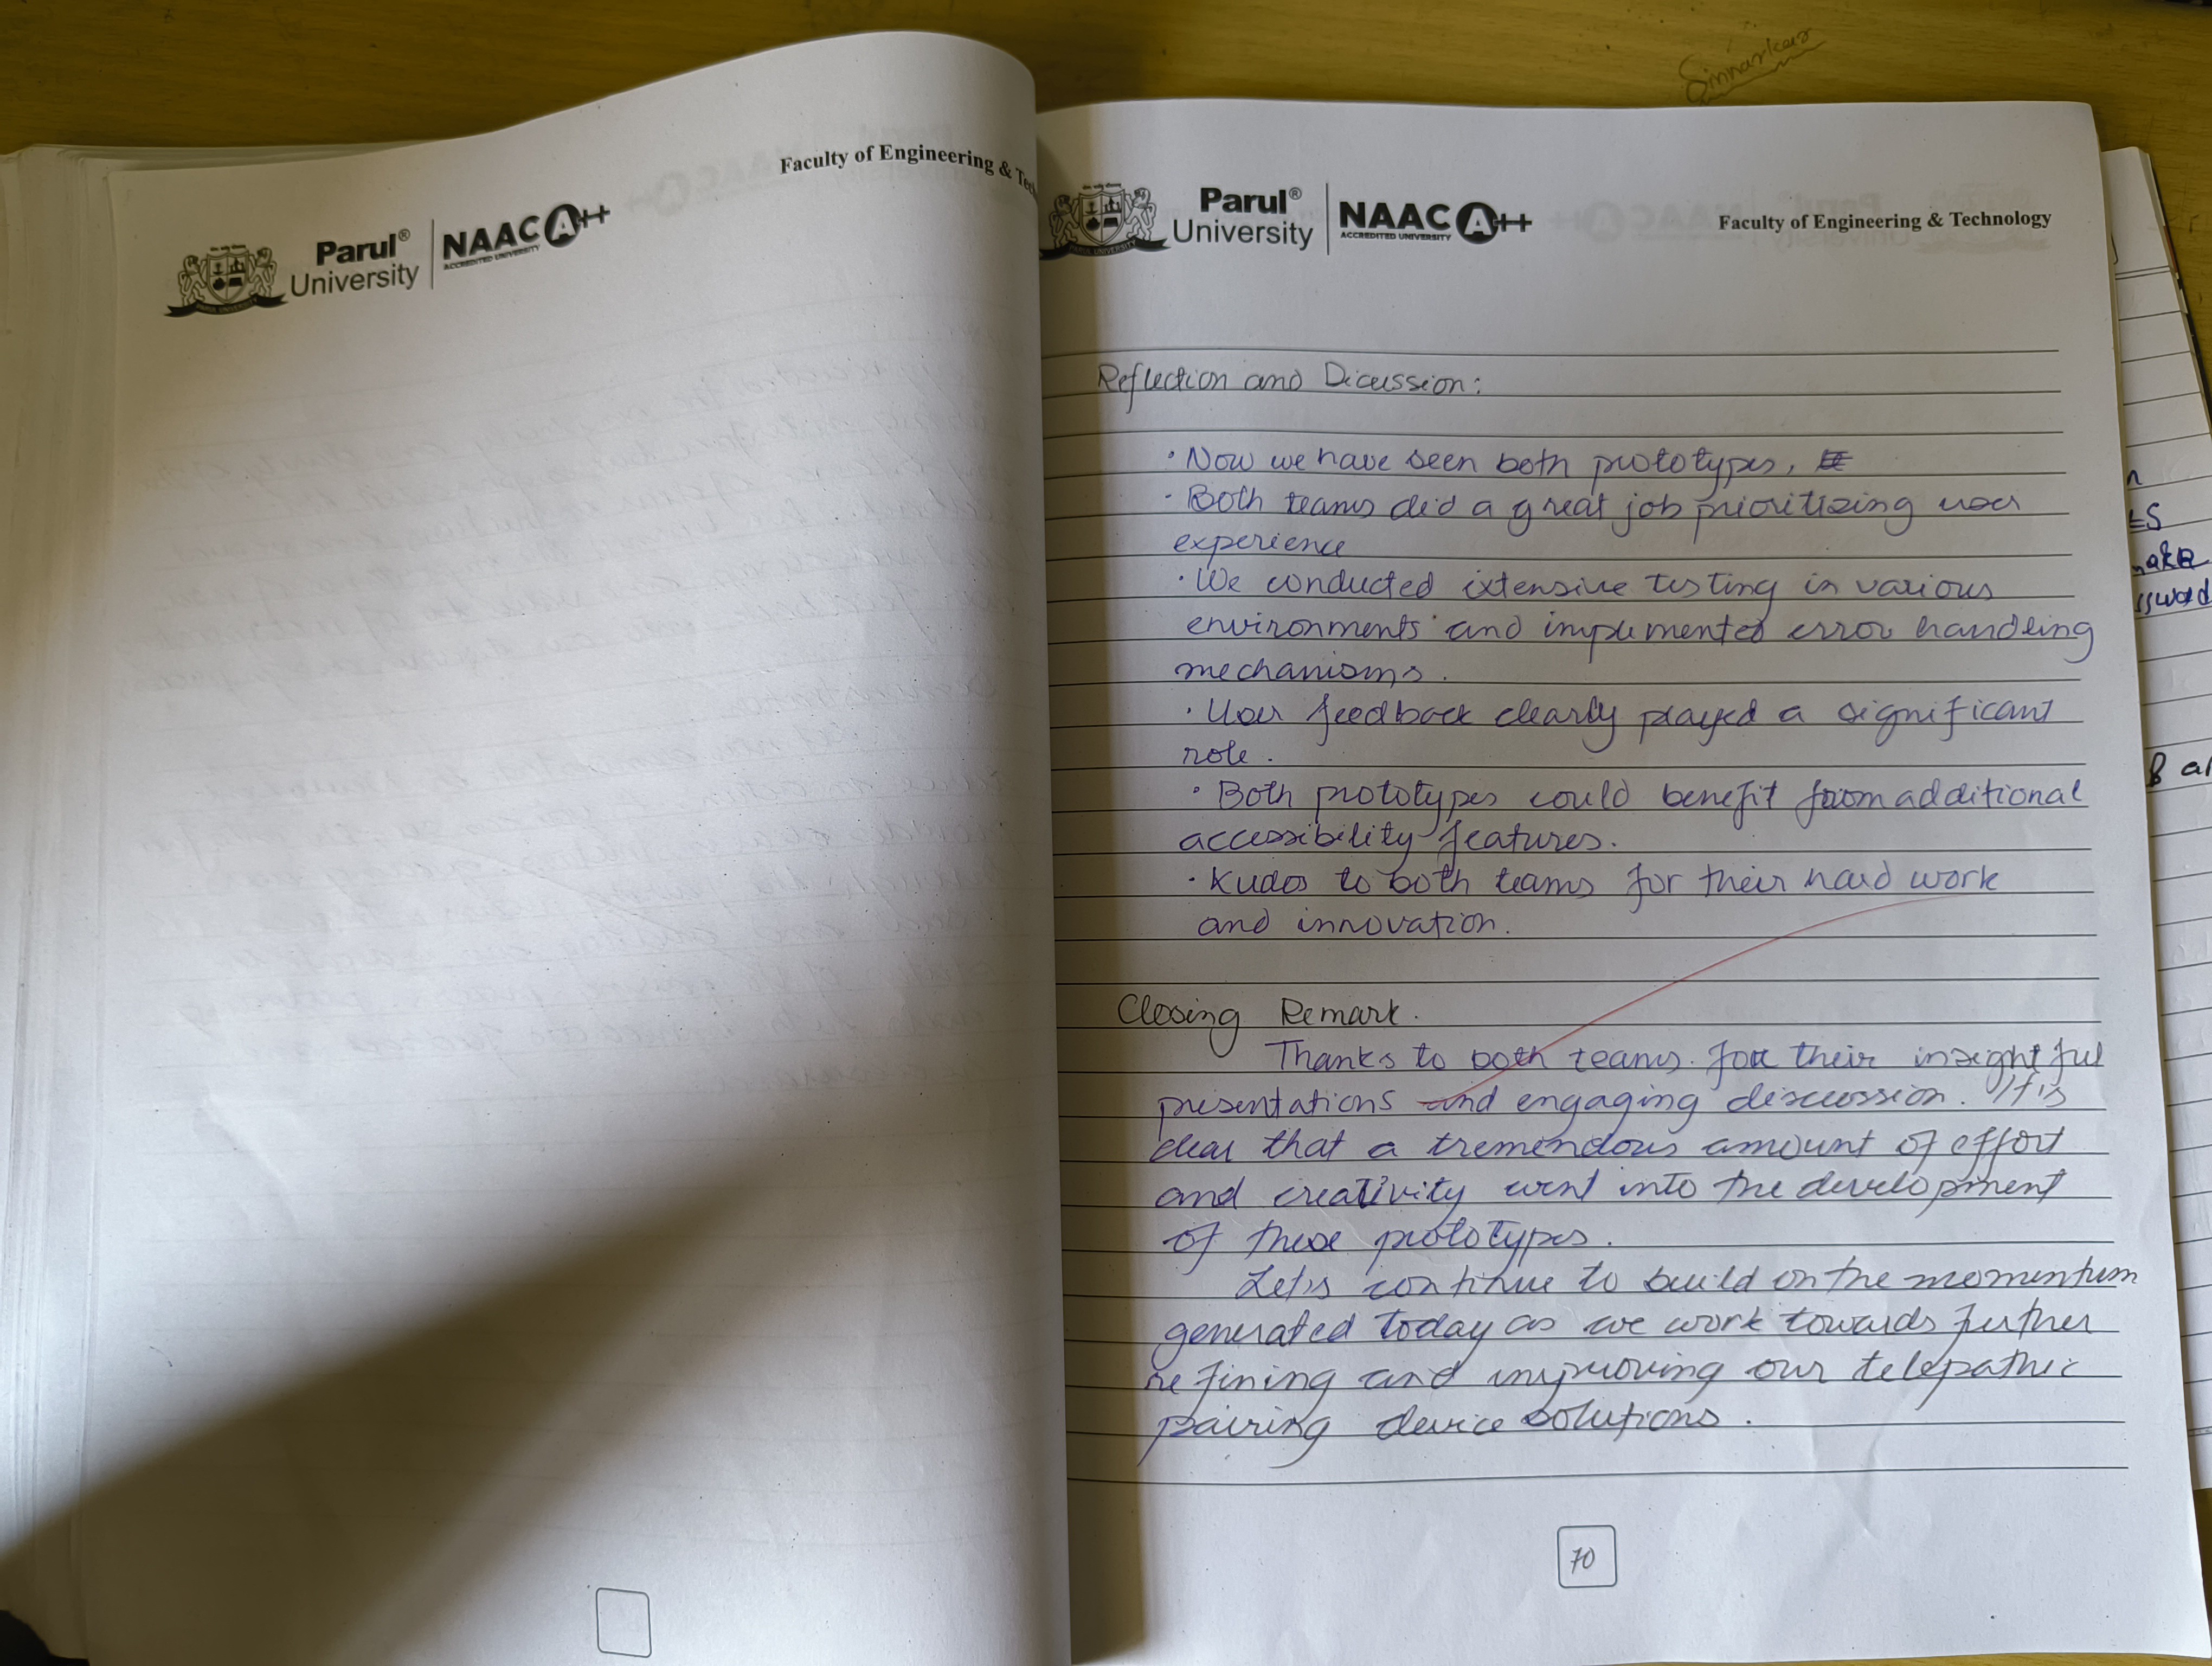 Sinnarkar
Faculty of Engineering & Tec
Parul®
University
NAAC A++
ACCREDITED UNIVERSITY
PARUL UNIVERSITY
Parul®
University
NAAC A++
ACCREDITED UNIVERSITY
Faculty of Engineering & Technology
Reflection and Dicussion:
· Now we have seen both prototypes,
· Both teams did a great job prioritizing user
experience
· We conducted extensive testing in various
environments and implemented error handling
mechanisms.
· User feedback clearly played a significant
role.
· Both prototypes could benefit from additional
accessibility features.
· Kudos to both teams for their hard work
and innovation.
Closing Remark.
Thanks to both teams for their insightful
presentations and engaging discussion. It's
clear that a tremendous amount of effort
and creativity went into the development
of these prototypes.
Let's continue to build on the momentum
generated today as we work towards further
refining and improving our telepathic
pairing device solutions.
70